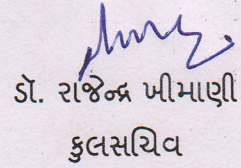 ડૉ. રાજેન્દ્ર ખીમાણી
કુલસચિવ